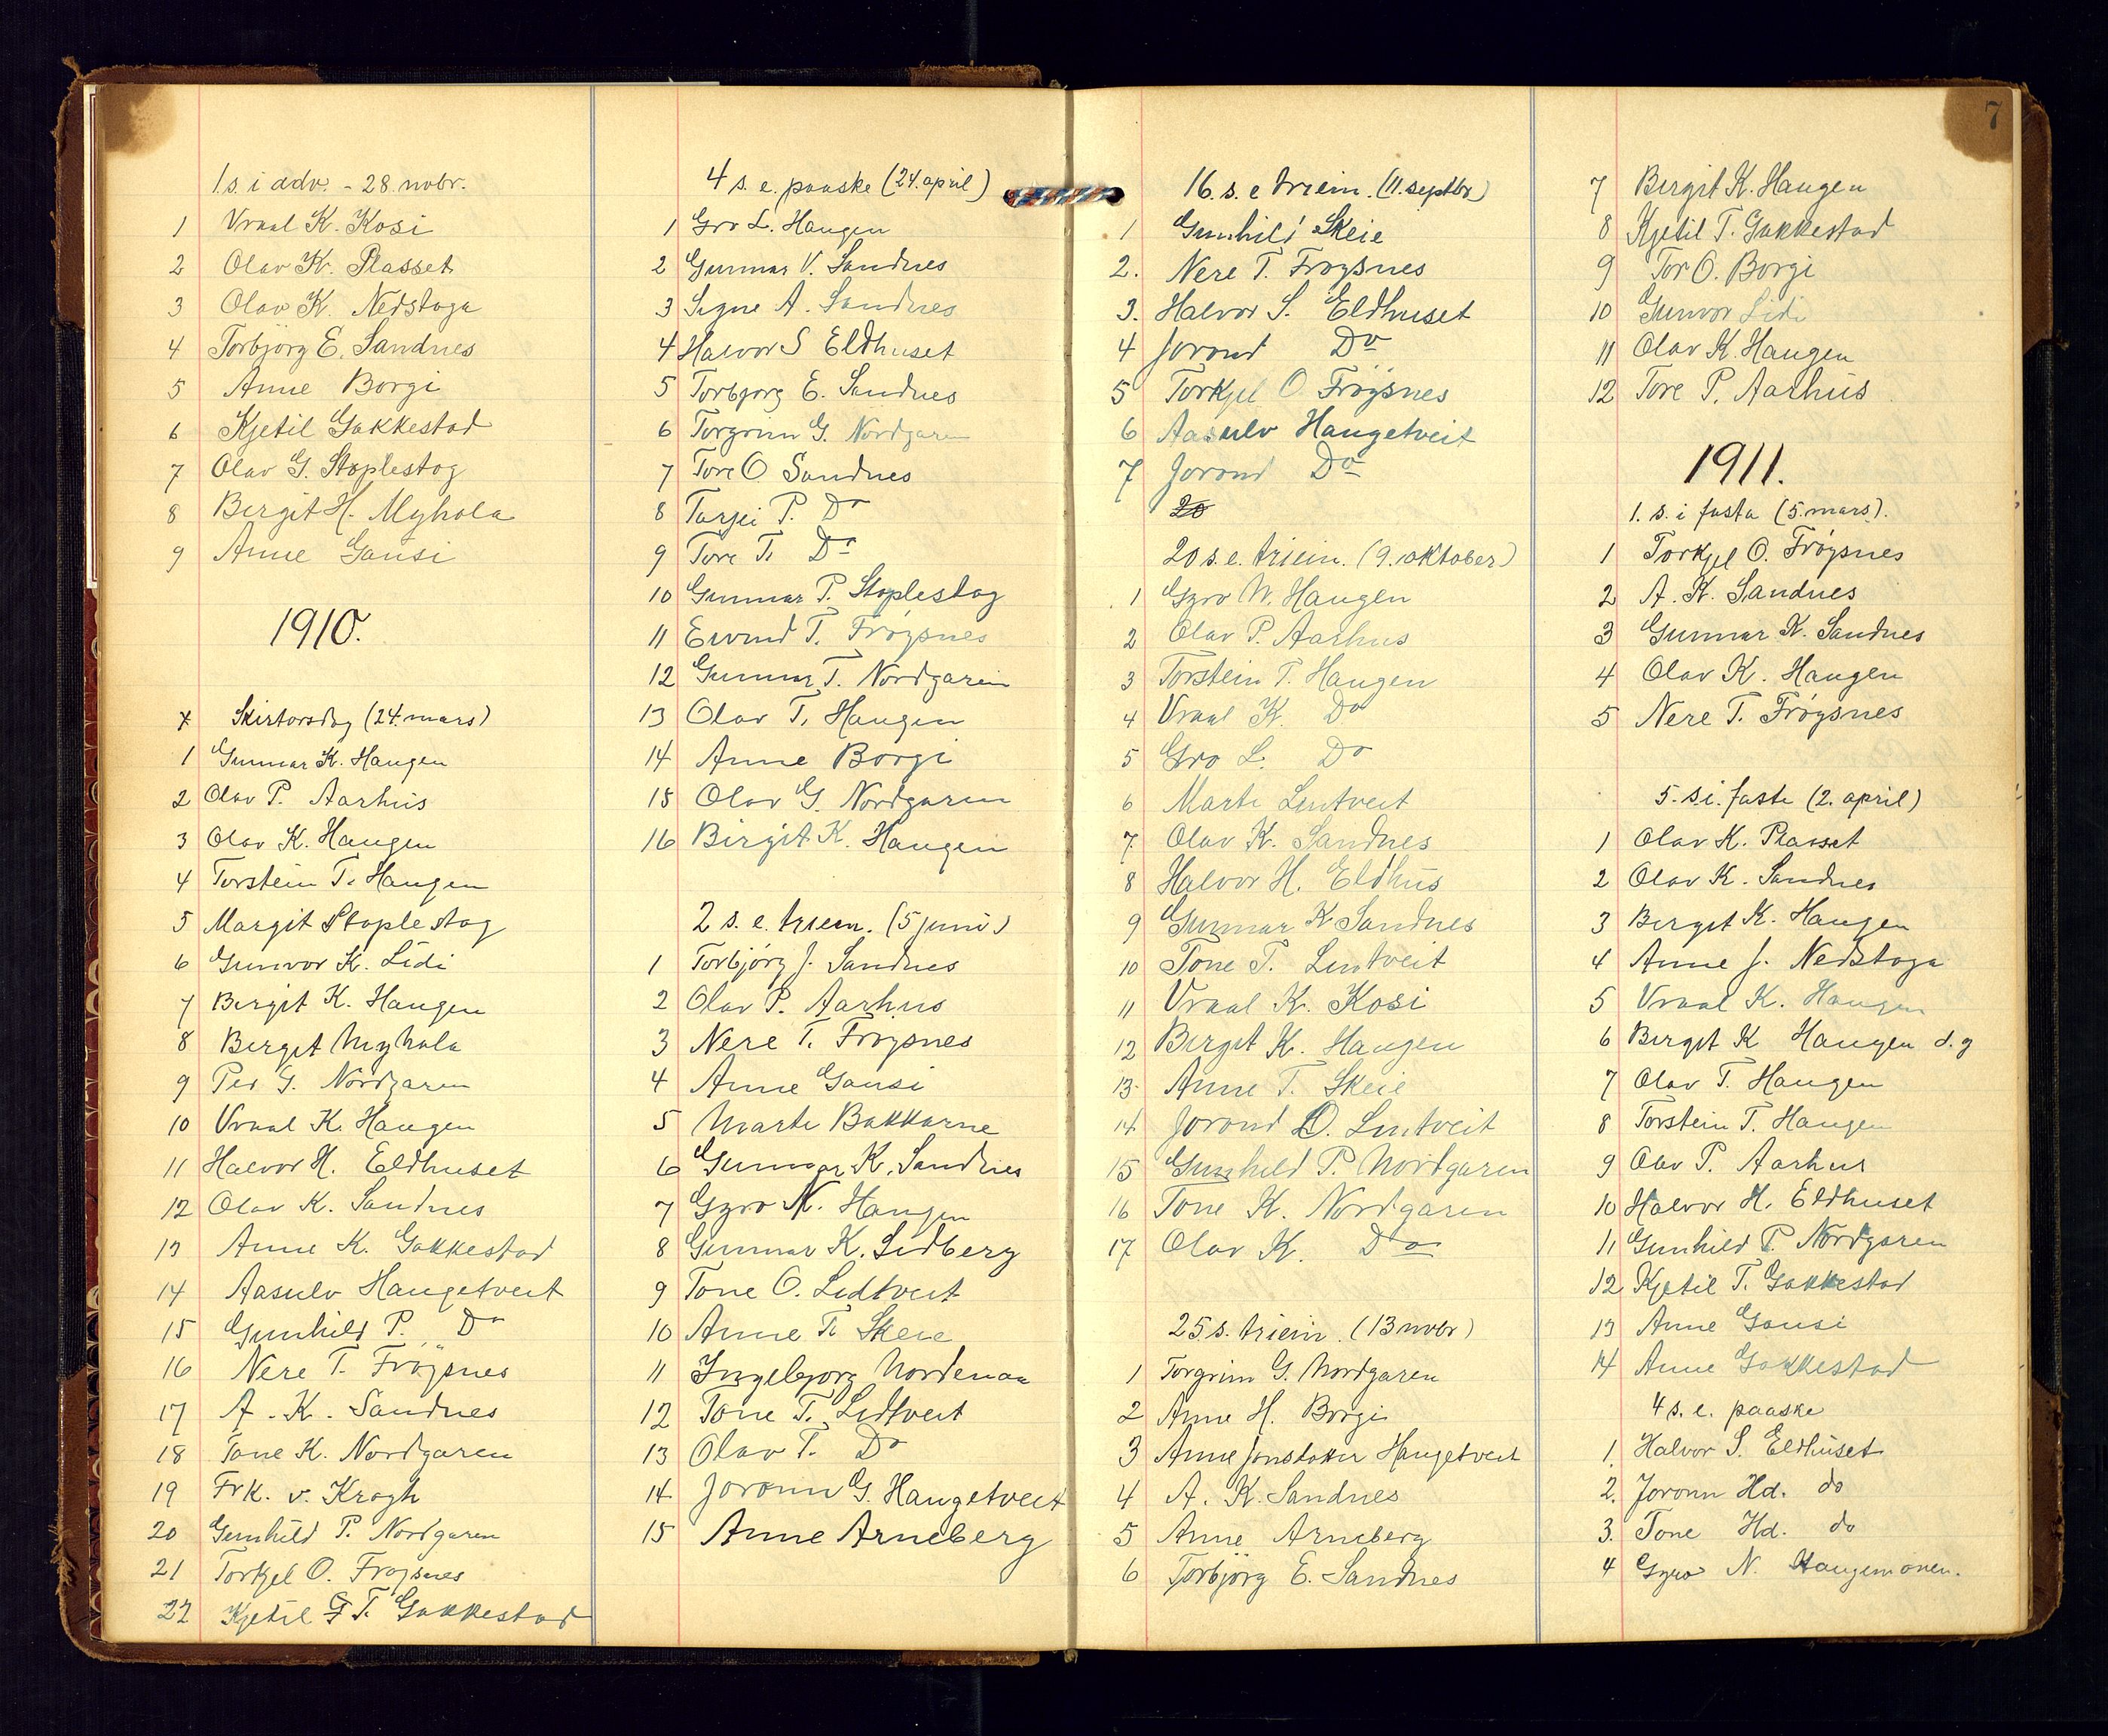 1. s. i adv. - 28. nobr.
1 Vraal K. Kosi
2 Olav K. Plasset
3 Olav K. Nedstoga
4 Torbjörg E. Sandnes
5 Anne Borgi
6 Kjetil Gakkestad
7 Olav G. Stoplestog
8 Bergit H. Myhola
9 Anne Gausi
1910.
x Skirtorsdag (24. mars)
1 Gunnar K. Haugen
2 Olav P. Aarhus
3 Olav K. Haugen
4 Torstein T. Haugen
5 Margit Stoplestog
6 Gunvor K. Lidi
7 Bergit K. Haugen
8 Berget Myhola
9 Per G. Nordgaren
10 Vraal K. Haugen
11 Halvor H. Eldhuset
12 Olav K. Sandnes
13 Anne K. Gakkestad
14 Aasulv Haugetveit
15 Gunhild P. Do
16 Nere T. Frøysnes
17 A. K. Sandnes
18 Tone K. Nordgaren
19 Frk. v. Krogh
20 Gunhild P. Nordgaren
21 Torkjel O. Frøysnes
22 Kjetil T. Gakkestad
4 s. e. paaske (24. april)
1 Gro L. Haugen
2 Gunnar V. Sandnes
3 Signe A. Sandnes
4 Halvor S Eldhuset
5 Torbjorg E. Sandnes
6 Torgrim G. Nordgaren
7 Tore O. Sandnes
8 Tarjei P. Do
9 Tore T. Do
10 Gunnar P. Stoplestog
11 Eivind T. Frøysnes
12 Gunnar T. Nordgaren
13 Olav T. Haugen
14 Anne Borgi
15 Olav G. Nordgaren
16 Birgit K. Haugen
2 s. e. triein. (5 juni)
1 Torbjörg J. Sandnes
2 Olav P. Aarhus
3 Nere T. Frøysnes
4 Anne Gausi
5 Marte Bakkarne
6 Gunnar K. Sandnes
7 Gyro N. Haugen
8 Gunnar K. Lidberg
9 Tone O. Lidtveit
10 Anne T. Skeie
11 Ingebjorg Nordenaa
12 Tone T. Lidtveit
13 Olav T. Do
14 Joronn G. Haugetveit
15 Anne Arneberg
7
16. s. e triein. (11. septbr)
1 Gunhild Skeie
2. Nere T. Frøysnes
3. Halvor S. Eldhuset
4 Jorond Do
5 Torkjel O. Frøysnes
6 Aasulv Haugetveit
7 Jorond Do
20
20 s. e. triein. (9. oktober)
1 Gyro N. Haugen
2 Olav P. Aarhus
3 Torstein T. Haugen
4 Vraal K. Do
5 Gro L. Do
6 Marte Lintveit
7. Olav K. Sandnes
8 Halvor H. Eldhus
9 Gunnar K Sandnes
10 Tone T. Lintveit
11 Vraal K. Kosi
12 Birgit K. Haugen
13. Anne T. Skeie
14. Jorond O. Lintveit
15 Gunhild P. Nordgaren
16 Tone K. Nordgaren
17 Olav K. Do
25 s. triein. (13 nobr)
1 Torgrim G. Nordgaren
2 Anne H. Borgi
3 Anne Jonsdotter Haugetveit
4 A. K. Sandnes
5 Anne Arneberg
6 Torbjörg E. Sandnes
7 Bergit K. Haugen
8 Kjetil T. Gakkestad
9 Tor O. Borgi
10 Gunvor Lidi
11 Olav K. Haugen
12 Tore P. Aarhus
1911.
1. s. i fasta (5. mars).
1 Torkjel O. Frøysnes
2 A. K. Sandnes
3 Gunnar K. Sandnes
4 Olav K. Haugen
5 Nere T. Frøysnes
5. s. i. faste (2. april)
1 Olav K. Plasset
2 Olav K. Sandnes
3 Berget K. Haugen
4 Anne J. Nedstoga
5 Vraal K. Haugen
6 Birgit K Haugen d. y
7 Olav T. Haugen
8 Torstein T. Haugen
9 Olav P. Aarhus
10 Halvor H. Eldhuset
11 Gunhild P. Nordgaren
12 Kjetil T. Gakkestad
13 Anne Gausi
14 Anne Gakkestad
4 s. e. paaske
1. Halvor S. Eldhuset
2. Joronn Hd. do
3. Tone Hd. do
4 Gyro N. Haugemonen.